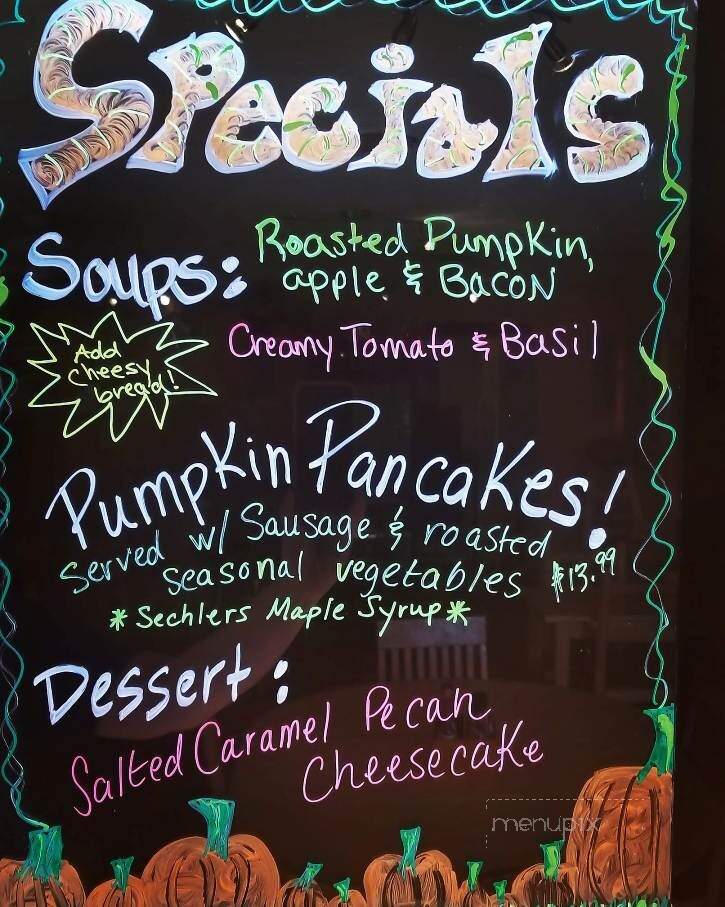 Specials
Soups:
Roasted Pumpkin,
apple & Bacon
Add
Cheesy
bread!
Creamy Tomato & Basil
Pumpkin Pancakes!
Served w/ Sausage & roasted
seasonal vegetables $13.99
*Sechlers Maple Syrup*
Dessert:
Salted Caramel Pecan
Cheesecake
menupix